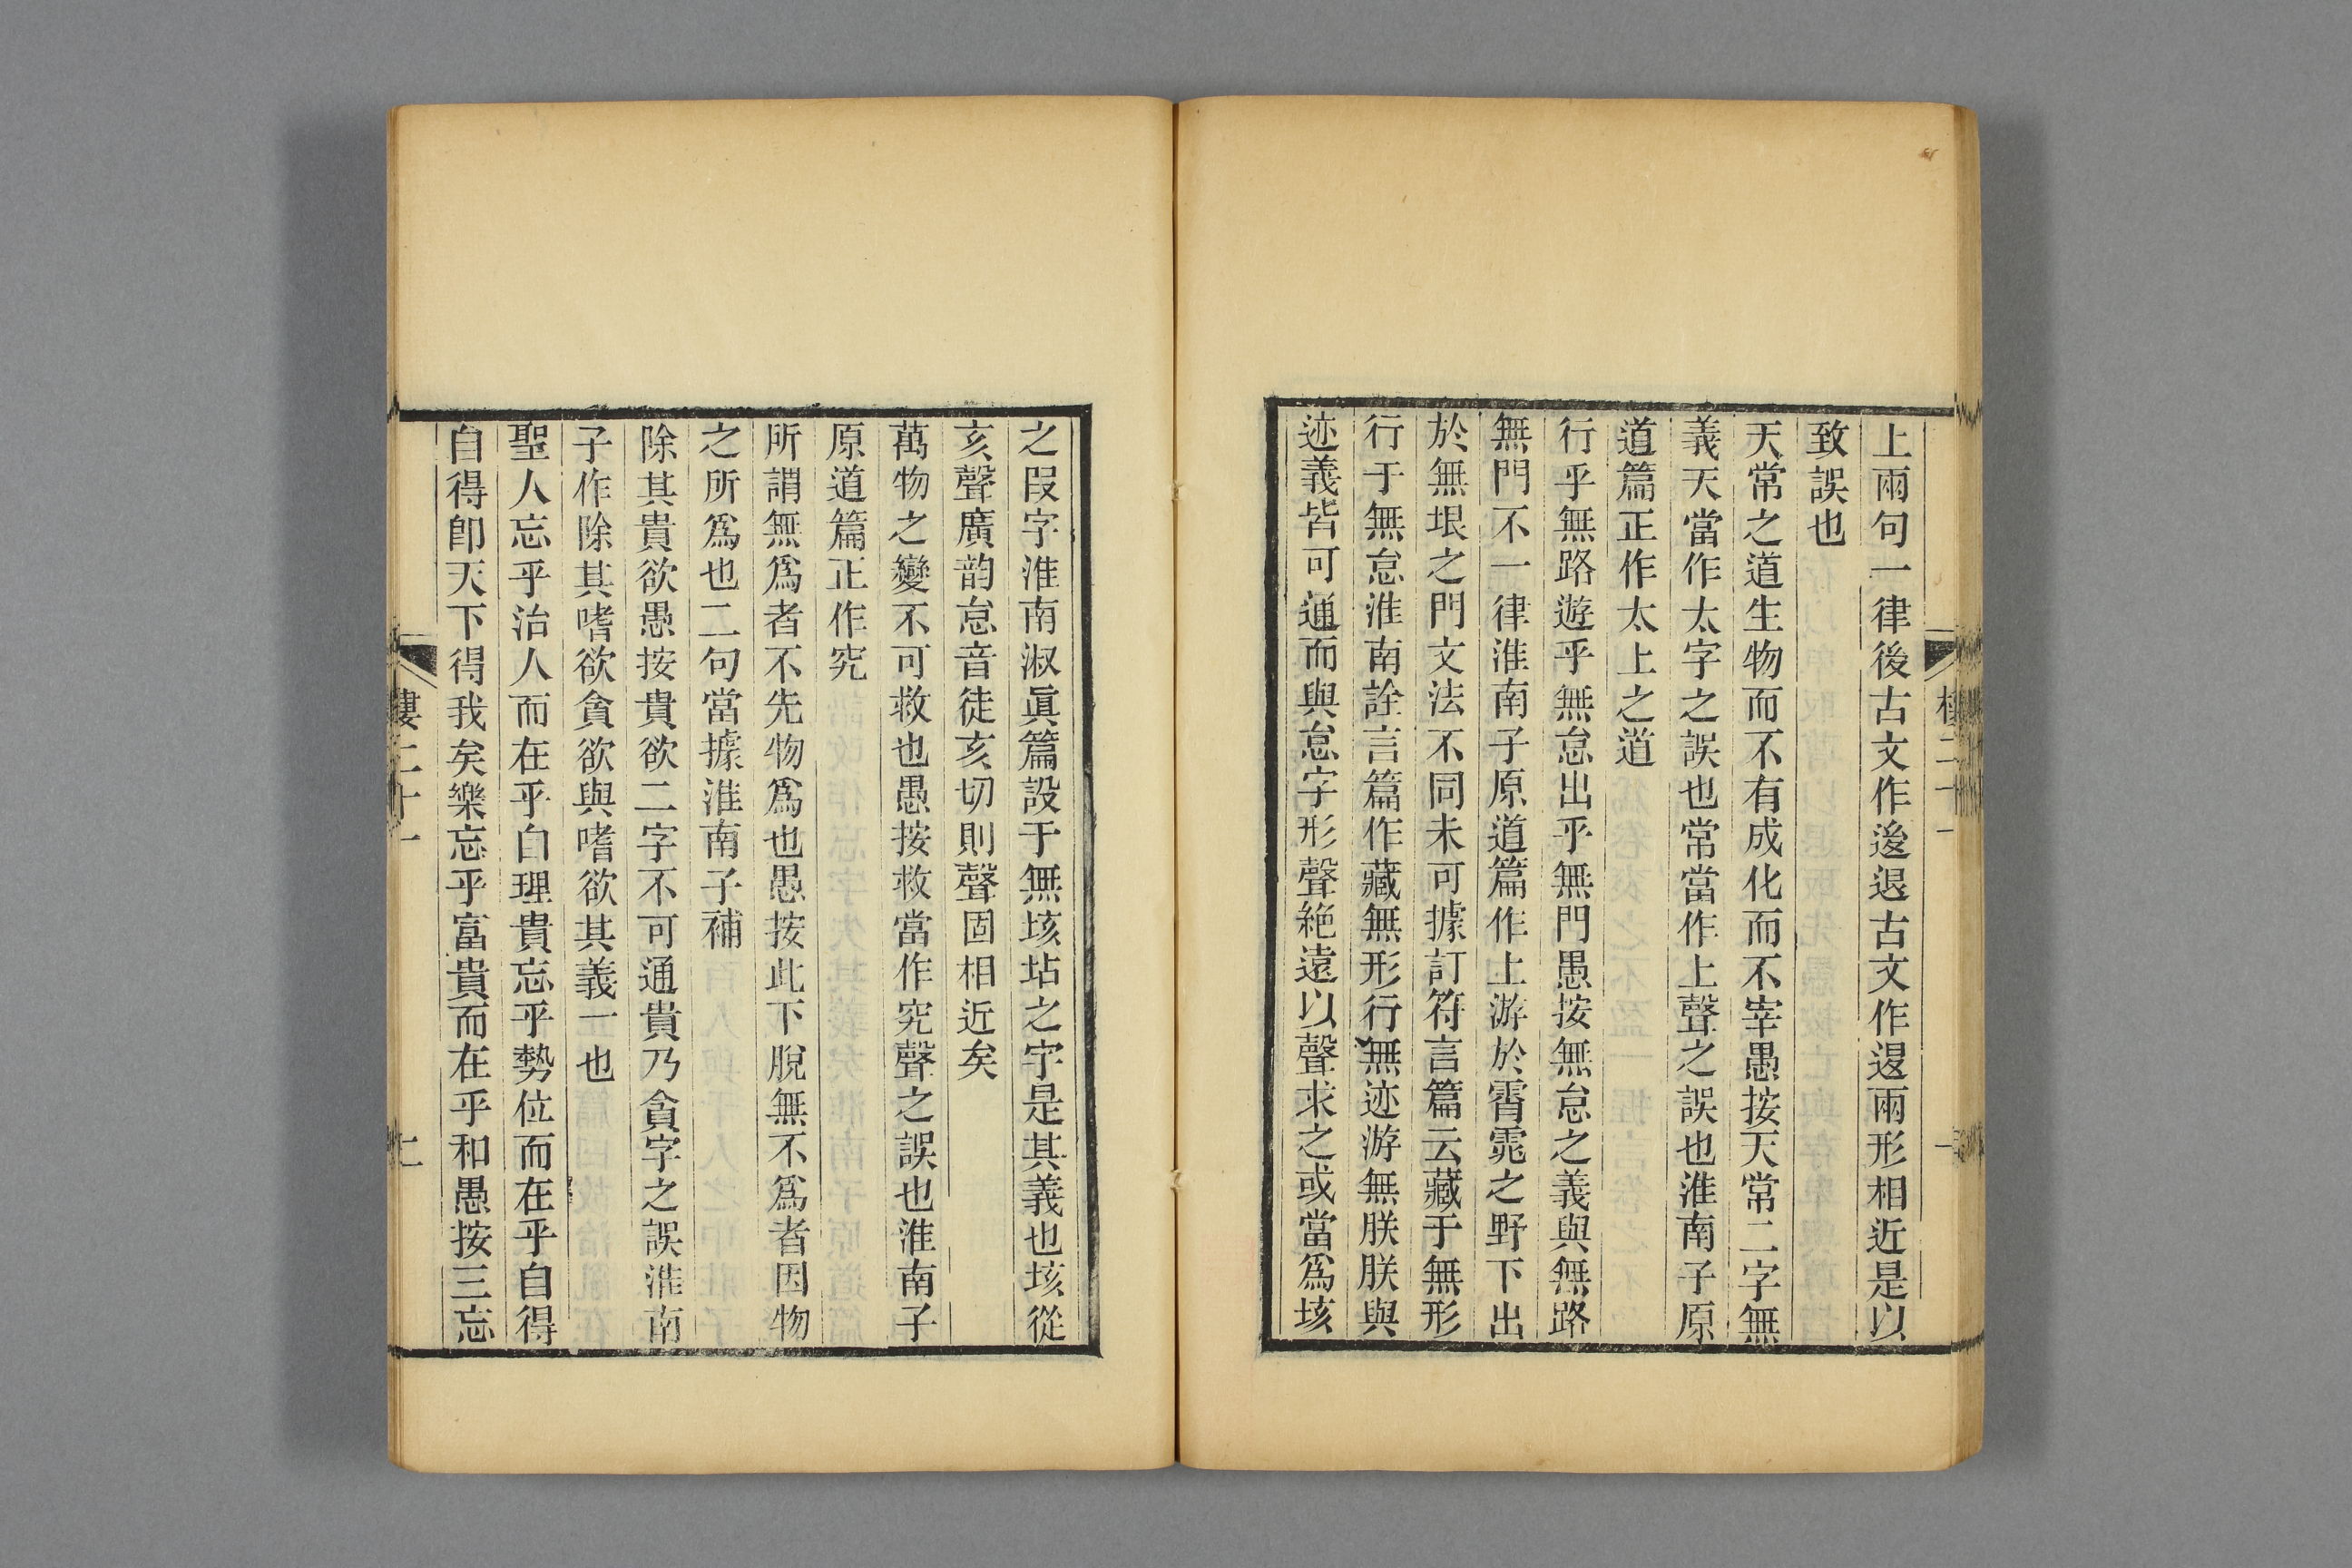 上兩句一律後古文作逡退古文作𨓤兩形相近是以
致誤也
天常之道生物而不有成化而不宰愚按天常二字無
義天當作太字之誤也常當作上聲之誤也淮南子原
道篇正作太上之道
行乎無路遊乎無怠出乎無門愚按無怠之義與無路
無門不一律淮南子原道篇作上游於霄雿之野下出
於無垠之門文法不同未可據訂符言篇云藏于無形
行于無怠淮南詮言篇作藏無形行無迹游無朕朕與
迹義皆可通而與怠字形聲絶遠以聲求之或當爲垓
之叚字淮南淑眞篇設于無垓坫之宇是其義也垓從
亥聲廣韵怠音徒亥切則聲固相近矣
萬物之變不可救也愚按救當作究聲之誤也淮南子
原道篇正作究
所謂無爲者不先物爲也愚按此下脫無不爲者因物
之所爲也二句當據淮南子補
除其貴欲愚按貴欲二字不可通貴乃貪字之誤淮南
子作除其嗜欲貪欲與嗜欲其義一也
聖人忘乎治人而在乎自理貴忘乎勢位而在乎自得
自得卽天下得我矣樂忘乎富貴而在乎和愚按三忘
樓二十一